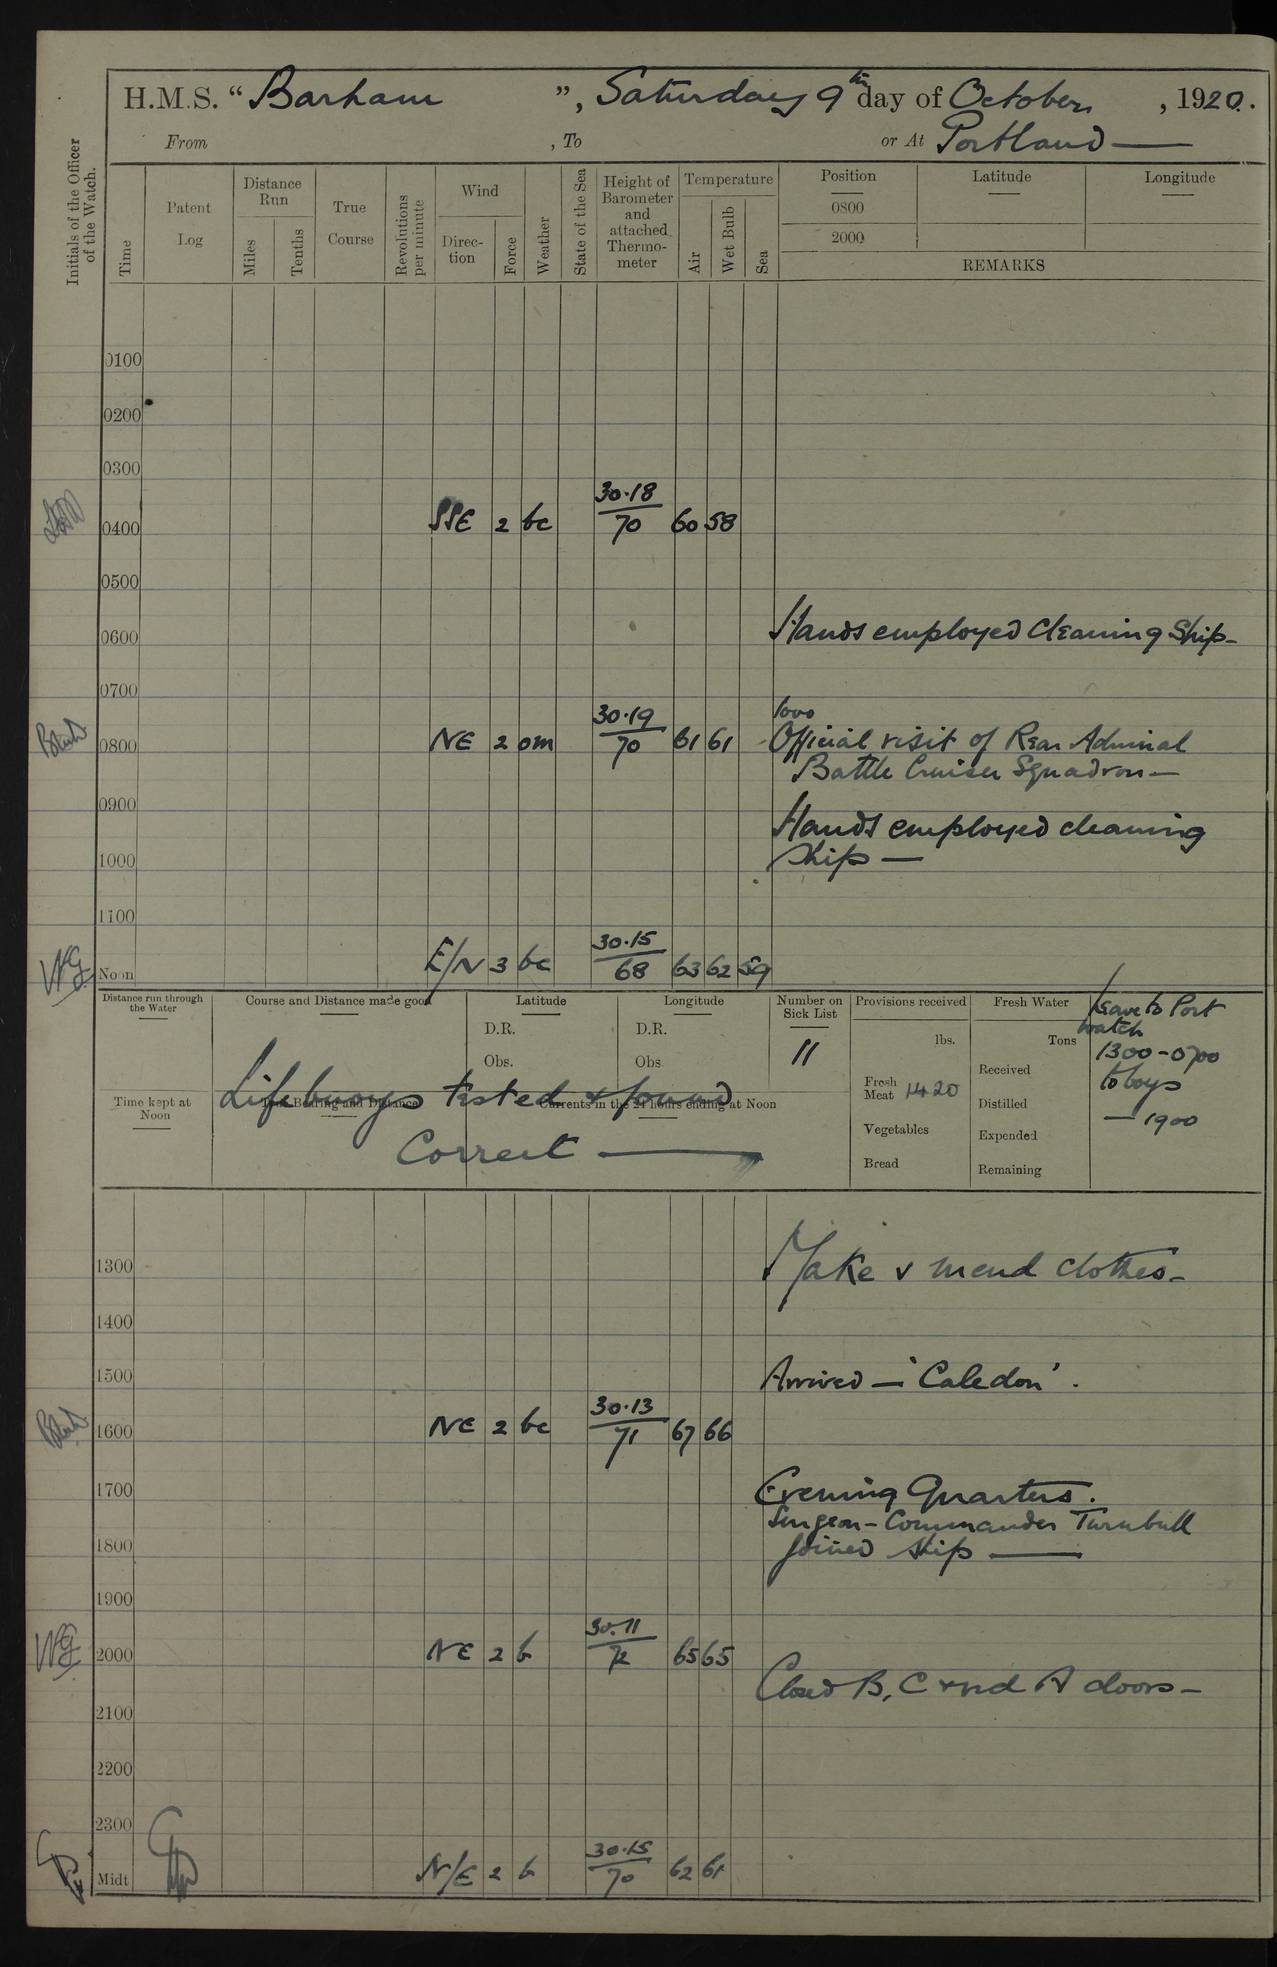 H.M.S. “Barham”, Saturday 9th day of October, 1920.
From , To or At Portland —
Initials of the Officer of the Watch.
Time
Patent Log
Distance Run
Miles
Tenths
True Course
Revolutions per minute
Wind
Direc-tion
Force
Weather
State of the Sea
Height of Barometer and attached Thermo-meter
Temperature
Air
Wet Bulb
Sea
Position Latitude Longitude
0800
2000
REMARKS
0100
0200
0300
30.18
0400 SSE 2 bc 70 60 58
0500
0600 Hands employed cleaning Ship —
0700
30.19 1000
0800 NE 2 om 70 61 61 Official visit of Rear Admiral
Battle Cruiser Squadron —
0900
Hands employed cleaning
1000 ship —
1100
30.15
Noon E/N 3 bc 68 63 62 59
Distance run through the Water
Course and Distance made good
Latitude
D.R.
Obs.
Longitude
D.R.
Obs
Number on Sick List
11
Provisions received
lbs.
Fresh Meat 1420
Vegetables
Bread
Fresh Water
Tons
Received
Distilled
Expended
Remaining
Leave to Port
watch
1300-0700
to boys
— 1900
Time kept at Noon
True Bearing and Distance
Currents in the 24 hours ending at Noon
Lifebuoys tested & found
Correct —
1300 Make & mend clothes —
1400
1500 Arrived — 'Caledon'.
30.13
1600 NE 2 bc 71 67 66
1700 Evening Quarters.
Surgeon-Commander Turnbull
1800 joined ship —
1900
30.11
2000 NE 2 b 72 65 65
Closed B, C and A doors —
2100
2200
2300
30.15
Midt N/E 2 b 70 62 61